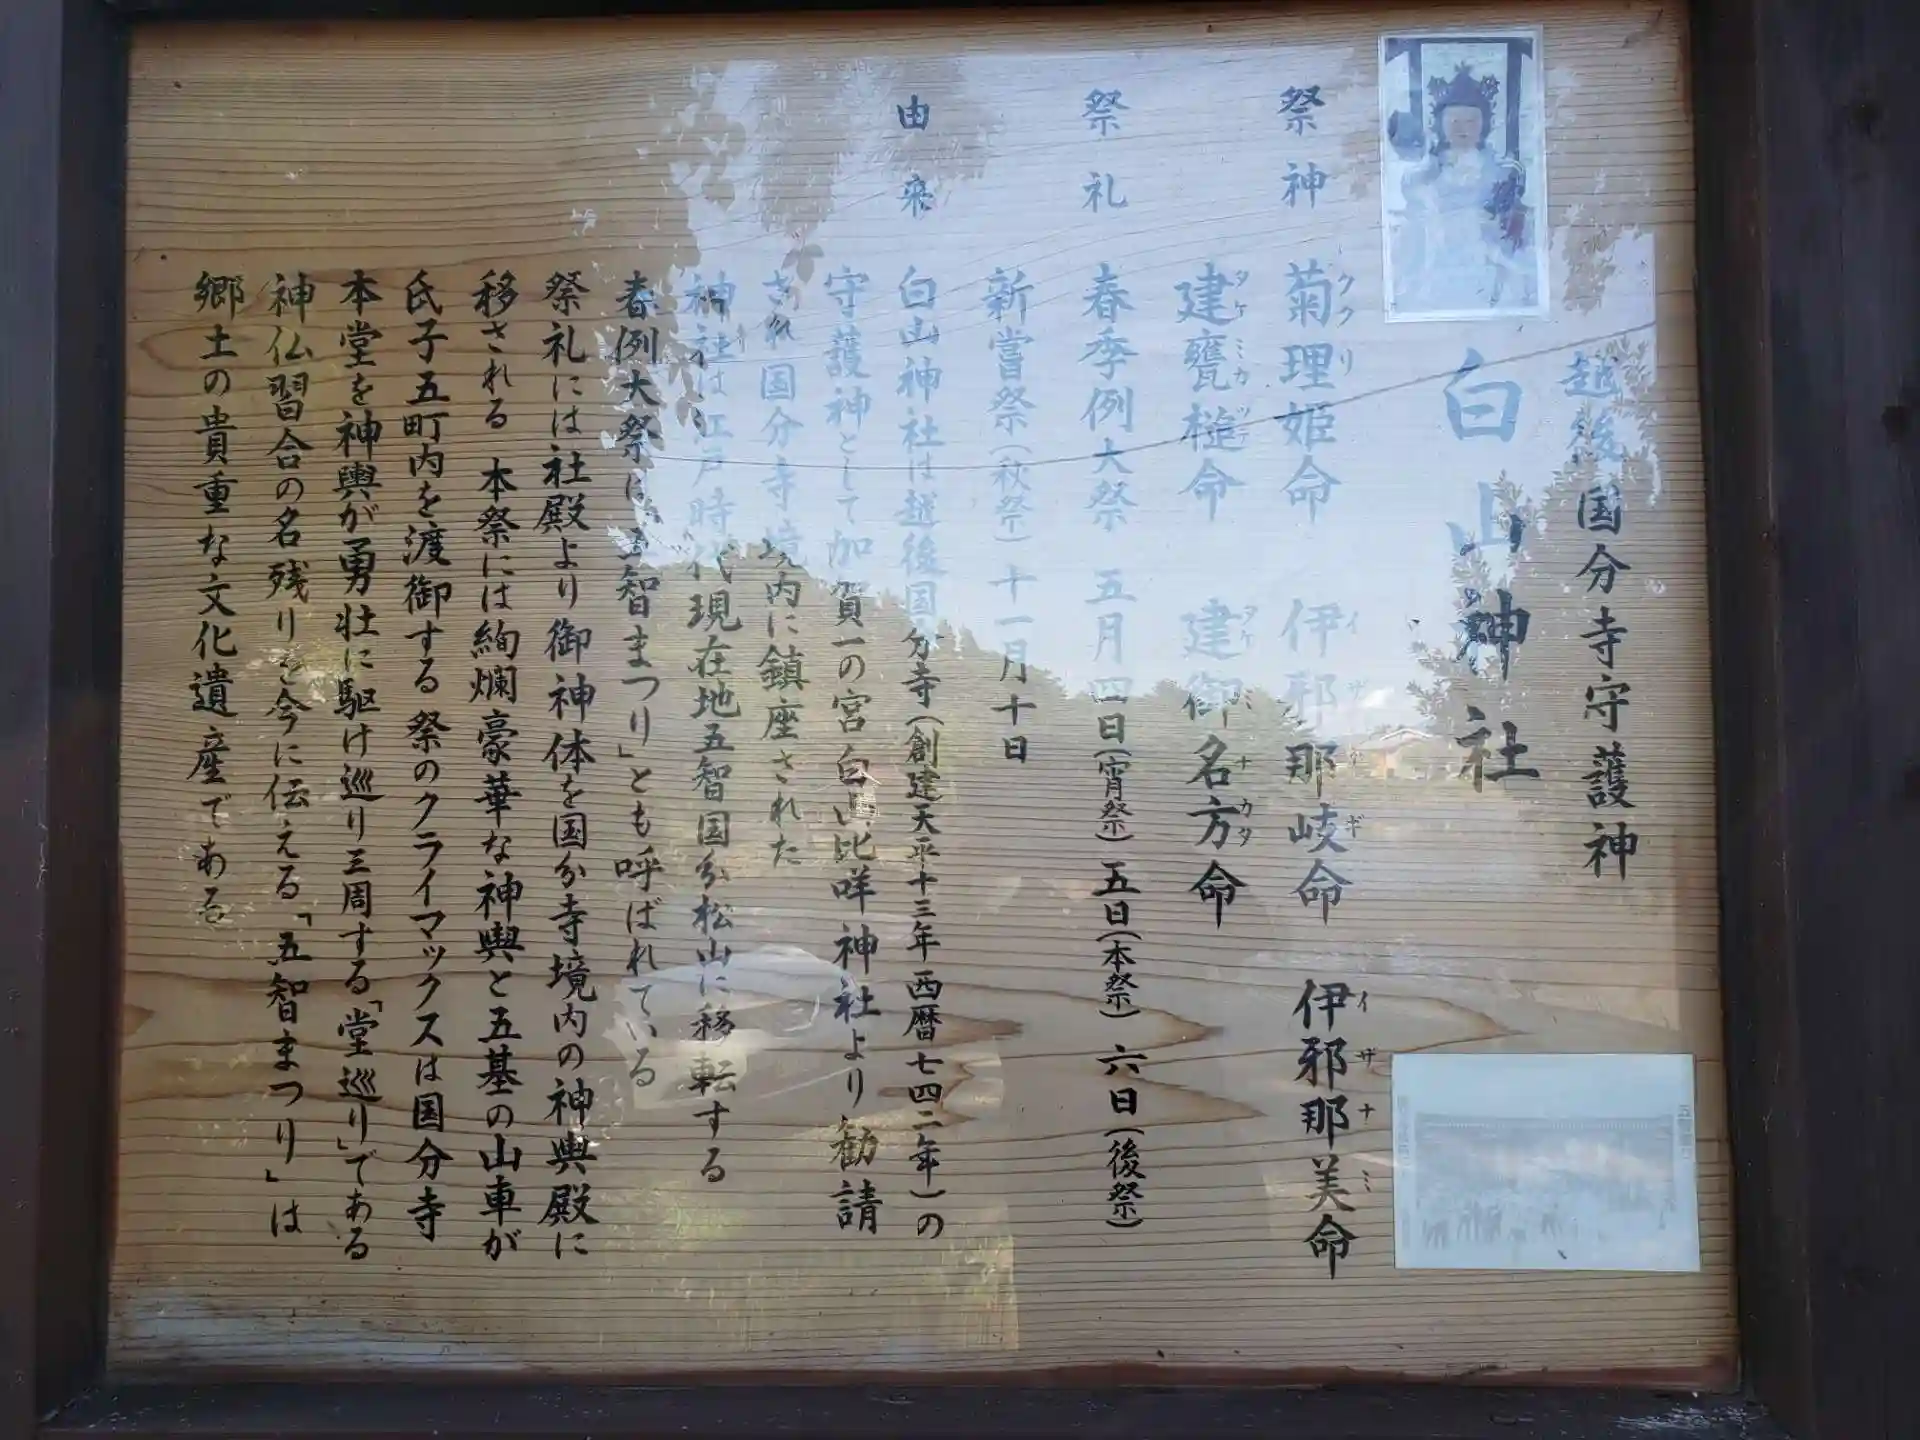 越後国分寺守護神
白山神社
祭神 菊理姫命 伊邪那岐命 伊邪那美命
ククリ イザナギ イザナミ
建甕槌命 建御名方命
タケミカヅチ タケミナカタ
祭礼 春季例大祭 五月四日(宵祭)五日(本祭) 六日(後祭)
新嘗祭(秋祭) 十一月十日
由来 白山神社は越後国分寺(創建天平十三年 西暦七四二年)の
守護神として加賀一の宮白山比咩神社より勧請
され国分寺境内に鎮座された
神社は江戸時代現在地五智国分松山に移転する
春例大祭は「五智まつり」とも呼ばれている
祭礼には社殿より御神体を国分寺境内の神輿殿に
移される 本祭には絢爛豪華な神輿と五基の山車が
氏子五町内を渡御する 祭のクライマックスは国分寺
本堂を神輿が勇壮に駆け巡り三周する「堂巡り」である
神仏習合の名残りを今に伝える「五智まつり」は
郷土の貴重な文化遺産である